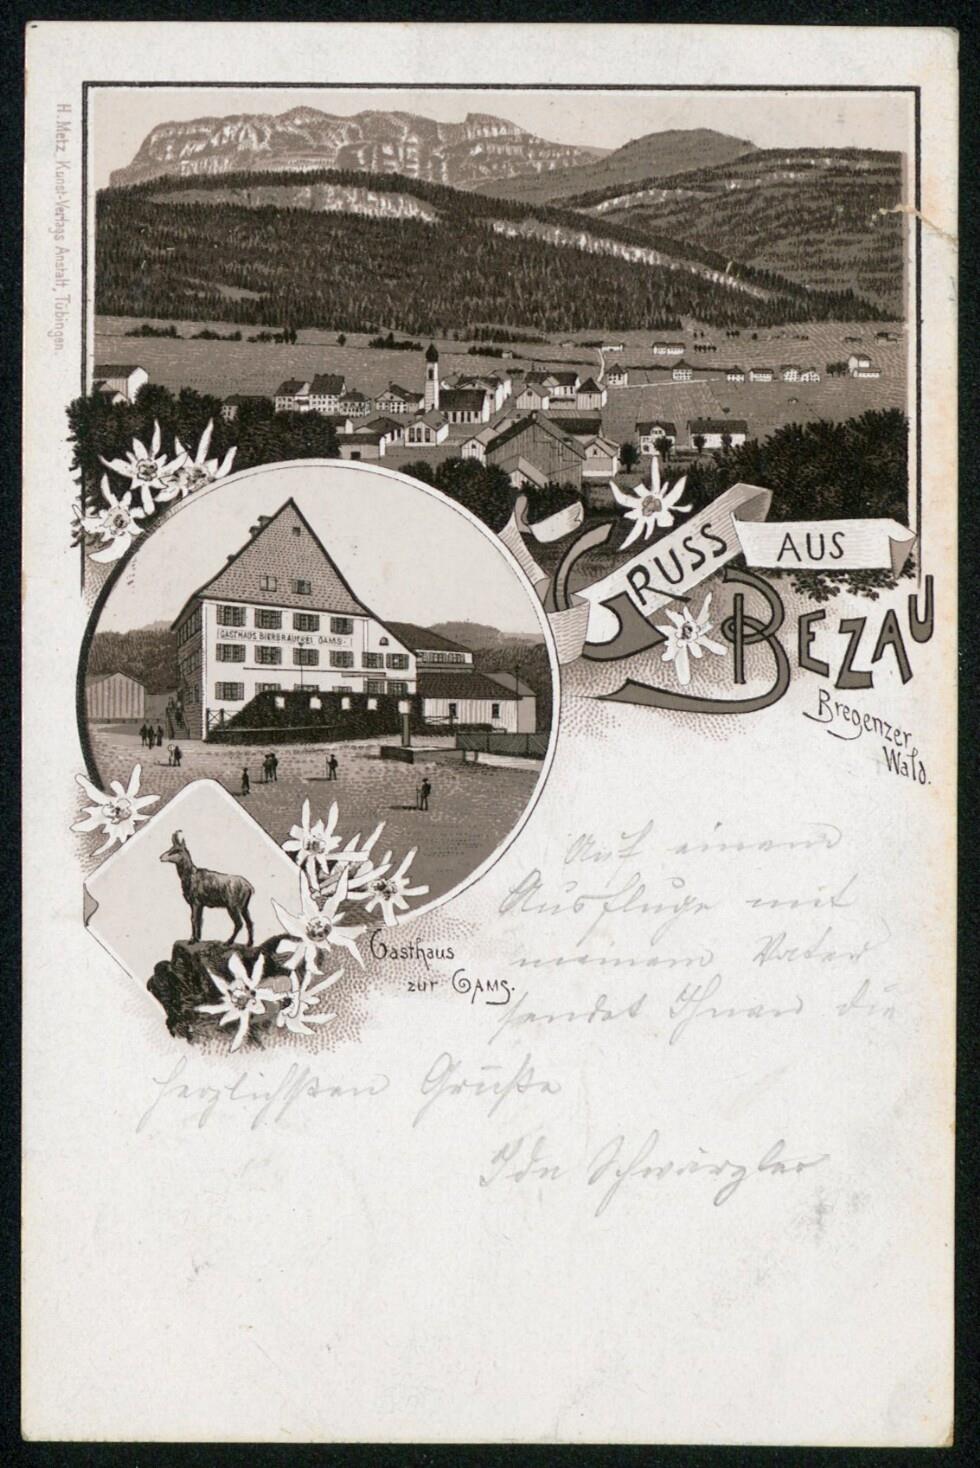 H. Metz, Kunst-Verlags Anstalt, Tübingen.
GRUSS AUS
BEZAU
Bregenzer
Wald.
GASTHAUS BIERBRAUEREI GAMS
Gasthaus
zur GAMS.
Auf einem
Ausfluge mit
meinem Vater
sendet Ihnen die
herzlichsten Grüße
Ida Schwärzler